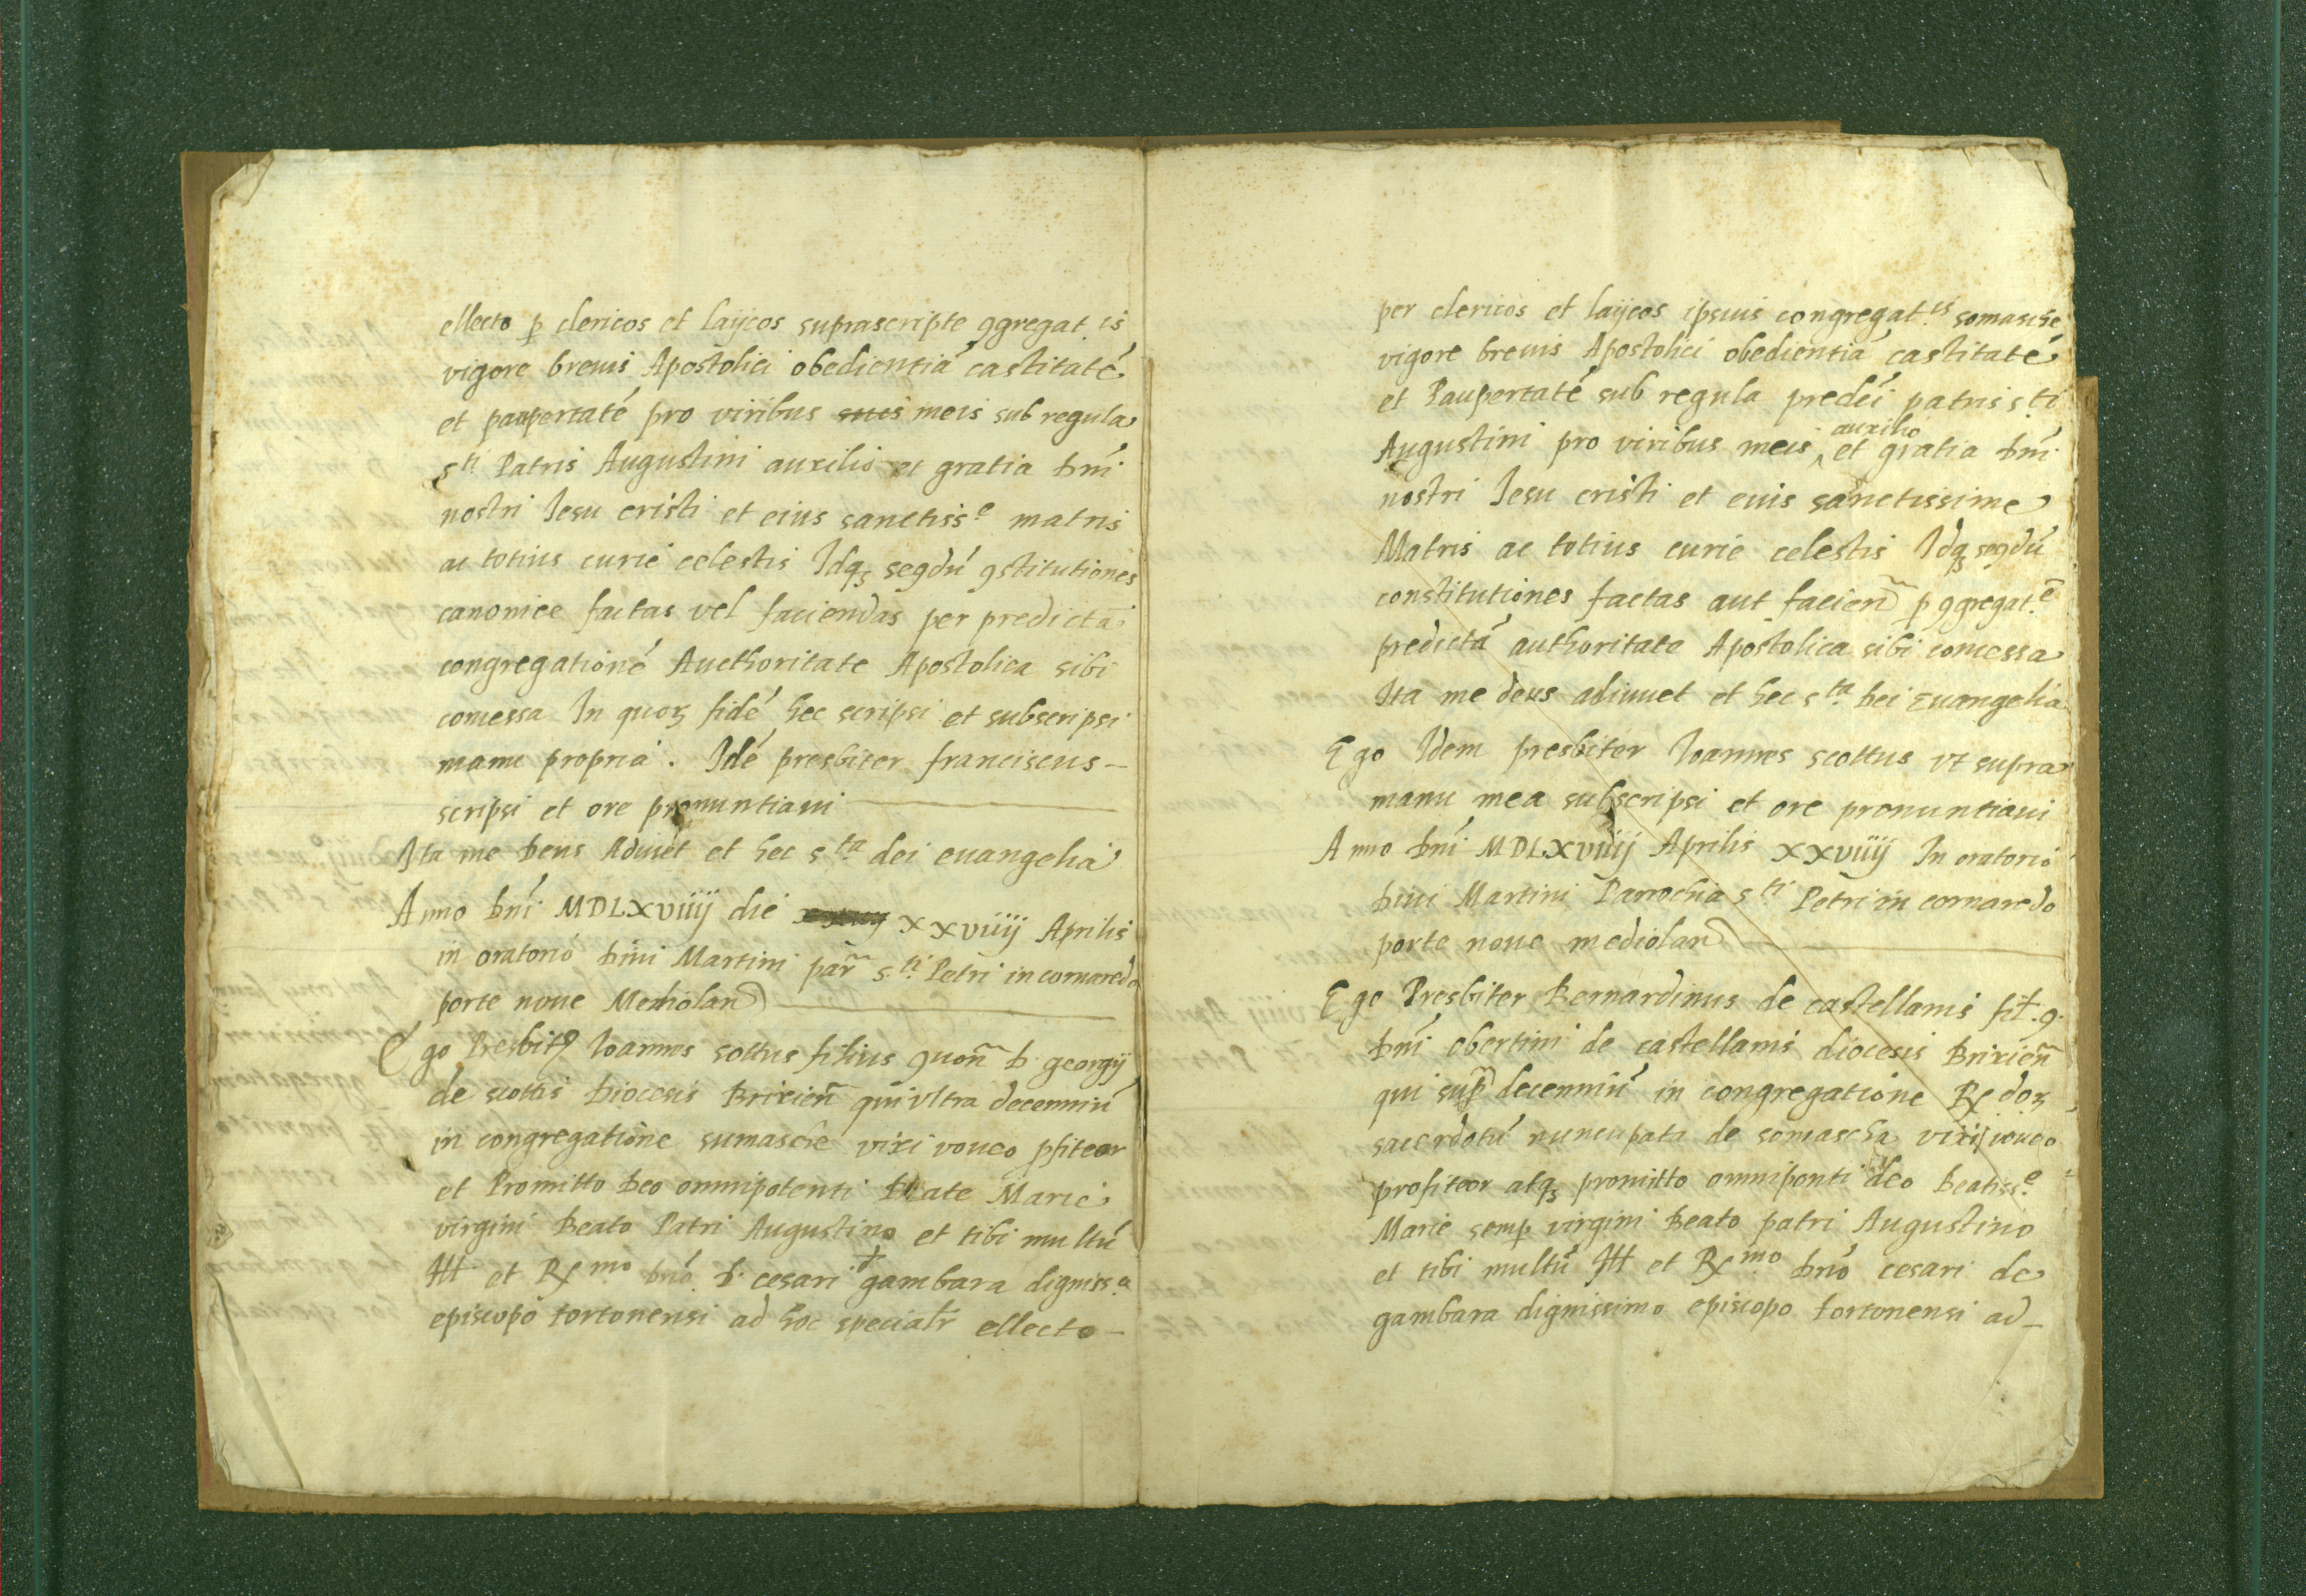 ellecto p clericos et laijcos suprascripte ggregat.is
vigore breuis Apostolici obedientiā castitatē
et paupertatē pro viribus suis meis sub regula
sti Patris Augustini auxilio et gratia Dnī
nostri Iesu cristi et eius sanctisse matris
ac totius curie celestis Idqȝ segdū gstitutiones
canonice factas vel faciendas per predictā
congregationē Aucthoritate Apostolica sibi
comessa In quoꝝ fidē hec scripsi et subscripsi
manu propria . Idē presbiter franciscus -
scripsi et ore pronuntiaui
Ita me Deus Adiuēt et hec sta dei euangelia
Anno Dnī MDLXviiij die xxviiij Aprilis
in oratorio Diui Martini par̃ s.ti Petri in cornaredo
porte noue Mediolan
Ego Presbitꝰ Ioannes sottus filius quon̄ D. georgij
de scottis Diocesis Brixien̄ qui vltra decenniū
in congregatione sumasche vixi voueo pfiteor
et Promitto Deo omnipotenti beate Marie
virgini Beato Patri Augustino et tibi multū
Ill. et Rmo Dnō D. cesari gambara digniss.o
episcopo tortonensi ad hoc specialr ellecto -
per clericos et laijcos ipsius congregat.is somasche
vigore breuis Apostolici obedientiā castitatē
et Paupertatē sub regula predcī patris s.ti
Augustini pro viribus meis auxilio et gratia Dnī
nostri Iesu cristi et eius sanctissime
Matris ac totius curie celestis Idqȝ segdū
constitutiones factas aut facien̄ p ggregat.e
predictā authoritate Apostolica sibi comessa
Ita me deus adiuuet et hec s.ta Dei Euangelia
Ego Idem presbiter Ioannes scottus vt supra
manu mea subscripsi et ore pronuntiaui
Anno Dnī MDLXviiij Aprilis xxviiij In oratorio
Diui Martini Parrochia s.ti Petri in cornaredo
porte noue mediolan
Ego Presbiter Bernardinus de castellanis fil. q.
Dnī obertini de castellanis diocesis Brixien̄
qui sup̄ decenniū in congregatione R. doꝝ
sacerdotū nuncupata de somascha vixi voueo
profiteor atqȝ promitto omniponti deo Beatiss.e
Marie semp virgini Beato patri Augustino
et tibi multū Ill et Rmo Dnō cesari de
gambara dignissimo episcopo tortonensi ad -